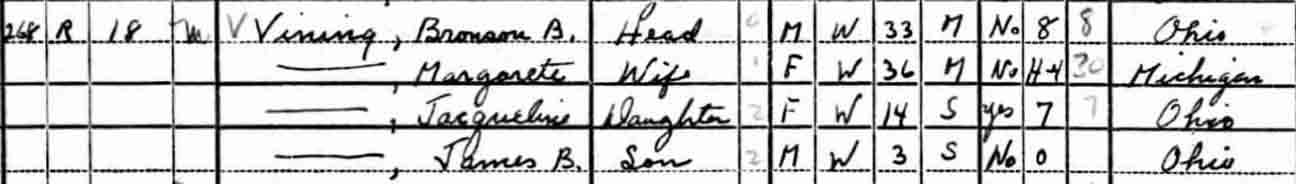 268 R 18 V Vining, Bronson B. Head 0 M W 33 M No 8 8 Ohio
——, Margarete Wife 1 F W 36 M No H-4 30 Michigan
——, Jacqueline Daughter 2 F W 14 S yes 7 7 Ohio
——, James B. Son 2 M W 3 S No 0 Ohio